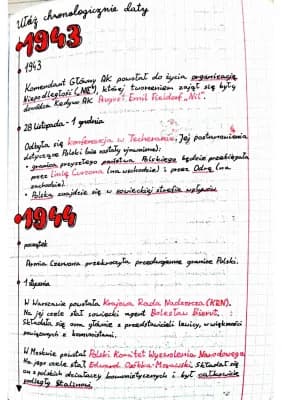 Ułóż chronologicznie daty
1943
1943
Komendant Główny AK powołał do życia organizację
Niepodległość („NIE”), której tworzeniem zajął się były
dowódca Kedywu AK August Emil Fieldorf „Nil”.
28 listopada - 1 grudnia
Odbyła się konferencja w Teheranie. Jej postanowienia
dotyczące Polski (nie zostały ujawnione):
granica przyszłego państwa Polskiego będzie przebiegała
przez linię Curzona (na wschodzie) i przez Odrę (na
zachodzie).
Polska znajdzie się w sowieckiej strefie wpływów
1944
początek
Armia Czerwona przekroczyła przedwojenne granice Polski.
1 stycznia
W Warszawie powstała Krajowa Rada Nadzorcza (KRN).
Na jej czele stał sowiecki agent Bolesław Bierut.
Składała się ona głównie z przedstawicieli lewicy, w większości
powiązanych z komunistami.
W Moskwie powstał Polski Komitet Wyzwolenia Narodowego.
Na jego czele stał Edward Osóbka-Morawski. Składał się
on z polskich działaczy komunistycznych i był całkowicie
podległy Stalinowi